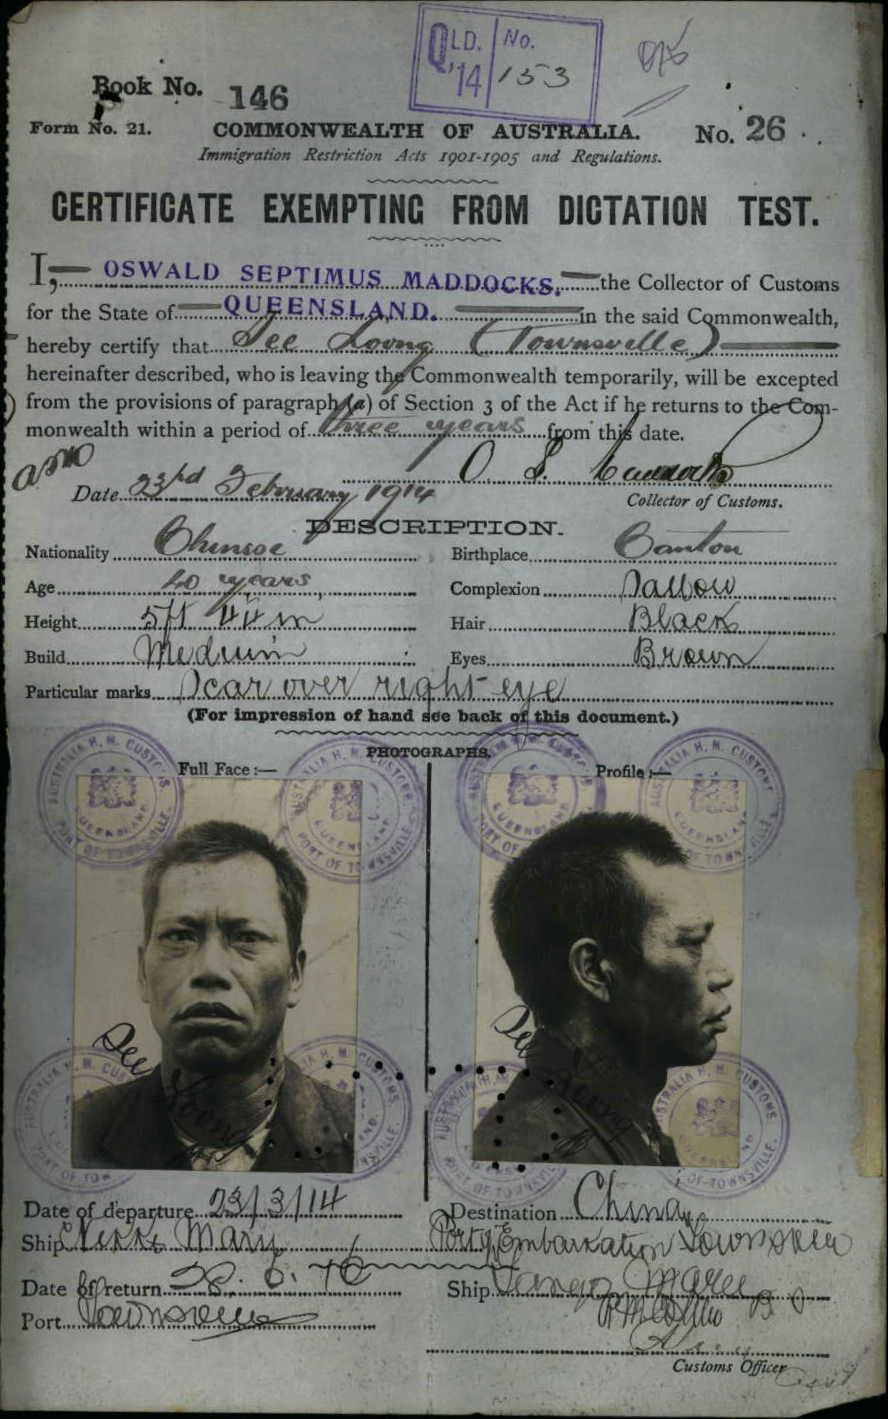 QLD. No.
'14 153
Book No. 146
Form No. 21. COMMONWEALTH OF AUSTRALIA. No. 26
Immigration Restriction Acts 1901-1905 and Regulations.
CERTIFICATE EXEMPTING FROM DICTATION TEST.
I, OSWALD SEPTIMUS MADDOCKS, the Collector of Customs
for the State of QUEENSLAND. in the said Commonwealth,
hereby certify that See Loong (Townsville)
hereinafter described, who is leaving the Commonwealth temporarily, will be excepted
from the provisions of paragraph (a) of Section 3 of the Act if he returns to the Com-
monwealth within a period of three years from this date.
O. S. Maddocks
Date 23rd February 1914 Collector of Customs.
DESCRIPTION.
Nationality Chinese Birthplace Canton
Age 40 years Complexion Sallow
Height 5ft 4¼ in Hair Black
Build Medium Eyes Brown
Particular marks Scar over right eye
(For impression of hand see back of this document.)
PHOTOGRAPHS.
Full Face :— Profile :—
AUSTRALIA H. M. CUSTOMS QUEENSLAND PORT OF TOWNSVILLE.
AUSTRALIA H. M. CUSTOMS QUEENSLAND PORT OF TOWNSVILLE.
AUSTRALIA H. M. CUSTOMS QUEENSLAND PORT OF TOWNSVILLE.
AUSTRALIA H. M. CUSTOMS QUEENSLAND PORT OF TOWNSVILLE.
See Loong See Loong
Date of departure 23/3/14 Destination China
Ship Nikko Maru Port of Embarkation Townsville
Date of return 28. 6. 16 Ship Tango Maru
Port Townsville
Customs Officer